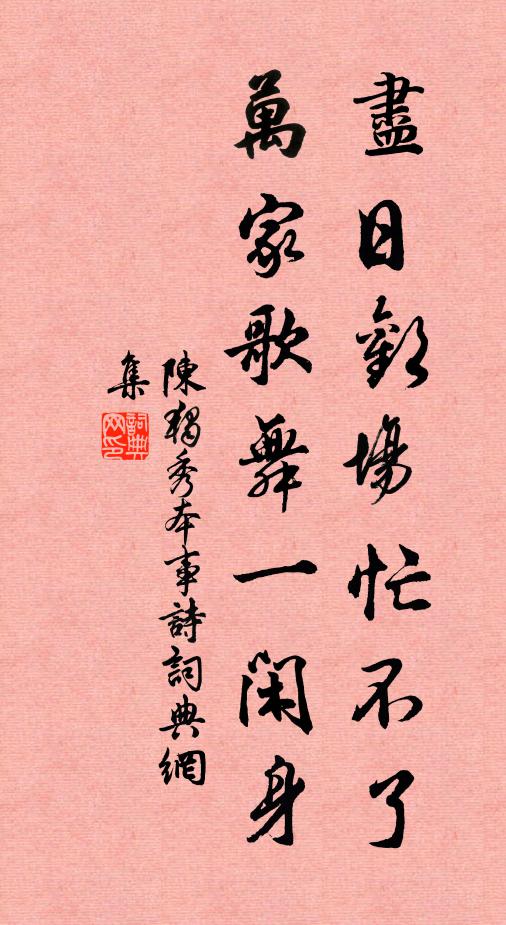 盡日歡場忙不了
萬家歌舞一閑身
陳獨秀本事詩詞典網
集
詞典網印